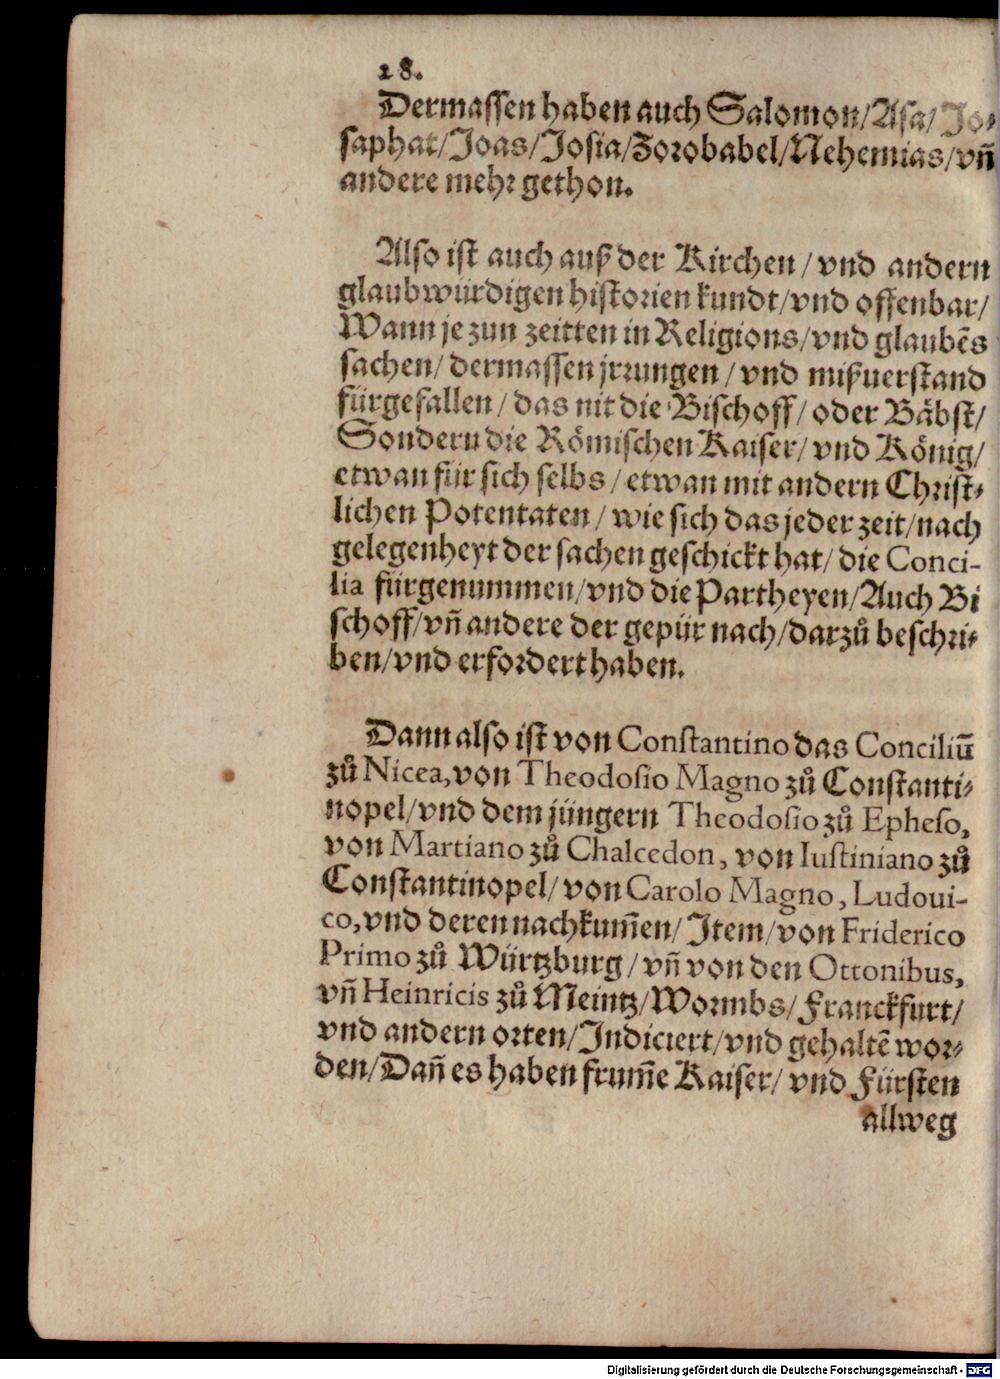 28.
Dermassen haben auch Salomon/Asa/Jo-
saphat/Joas/Josia/Zorobabel/Nehemias/vñ
andere mehr gethon.
Also ist auch auß der Kirchen/vnd andern
glaubwürdigen historien kundt/vnd offenbar/
Wann je zun zeitten in Religions/vnd glaubẽs
sachen/dermassen jrrungen/vnd mißuerstand
fürgefallen/das nit die Bischoff/oder Bäbst/
Sondern die Römischen Kaiser/vnd König/
etwan für sich selbs/etwan mit andern Christ-
lichen Potentaten/wie sich das jeder zeit/nach
gelegenheyt der sachen geschickt hat/die Conci-
lia fürgenummen/vnd die Partheyen/Auch Bi
schoff/vñ andere der gepür nach/darzů beschri-
ben/vnd erfordert haben.
Dann also ist von Constantino das Conciliũ
zů Nicea, von Theodosio Magno zů Constanti-
nopel/vnd dem jüngern Theodosio zů Epheso,
von Martiano zů Chalcedon, von Iustiniano zů
Constantinopel/von Carolo Magno, Ludoui-
co, vnd deren nachkum̃en/Item/von Friderico
Primo zů Würtzburg/vñ von den Ottonibus,
vñ Heinricis zů Meintz/Wormbs/Franckfurt/
vnd andern orten/Indiciert/vnd gehaltẽ wor-
den/Dañ es haben frum̃e Kaiser/vnd Fürsten
allweg
Digitalisierung gefördert durch die Deutsche Forschungsgemeinschaft - DFG